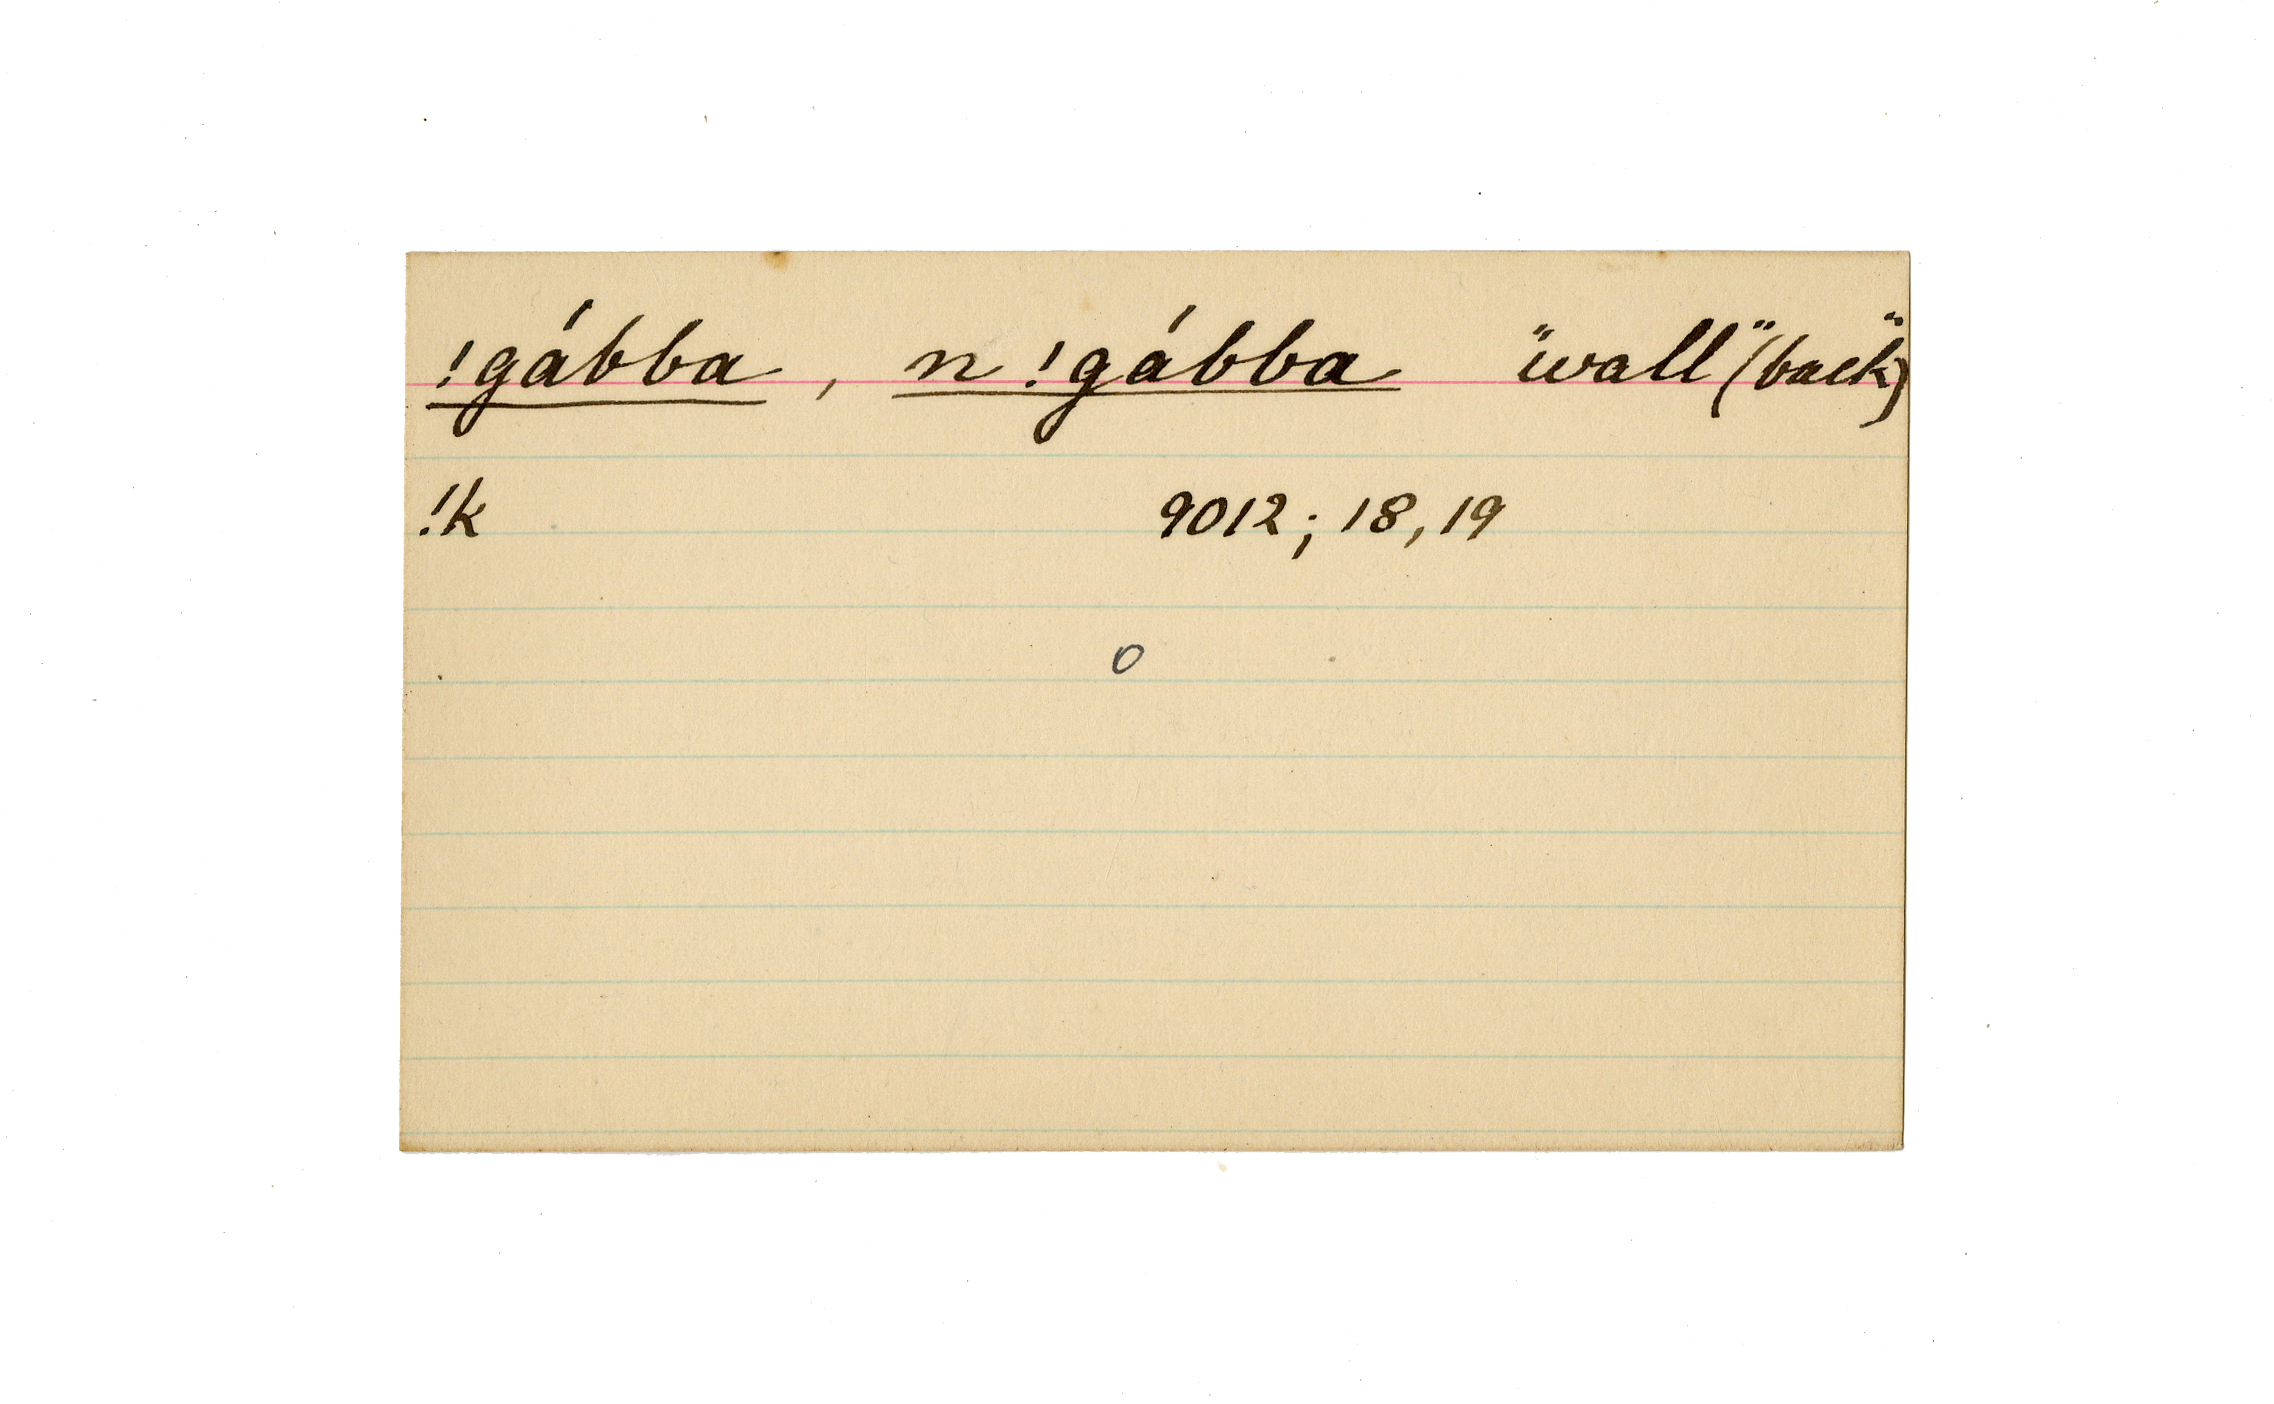 !gábba, n !gábba "wall" (back")
!k 9012; 18, 19
o